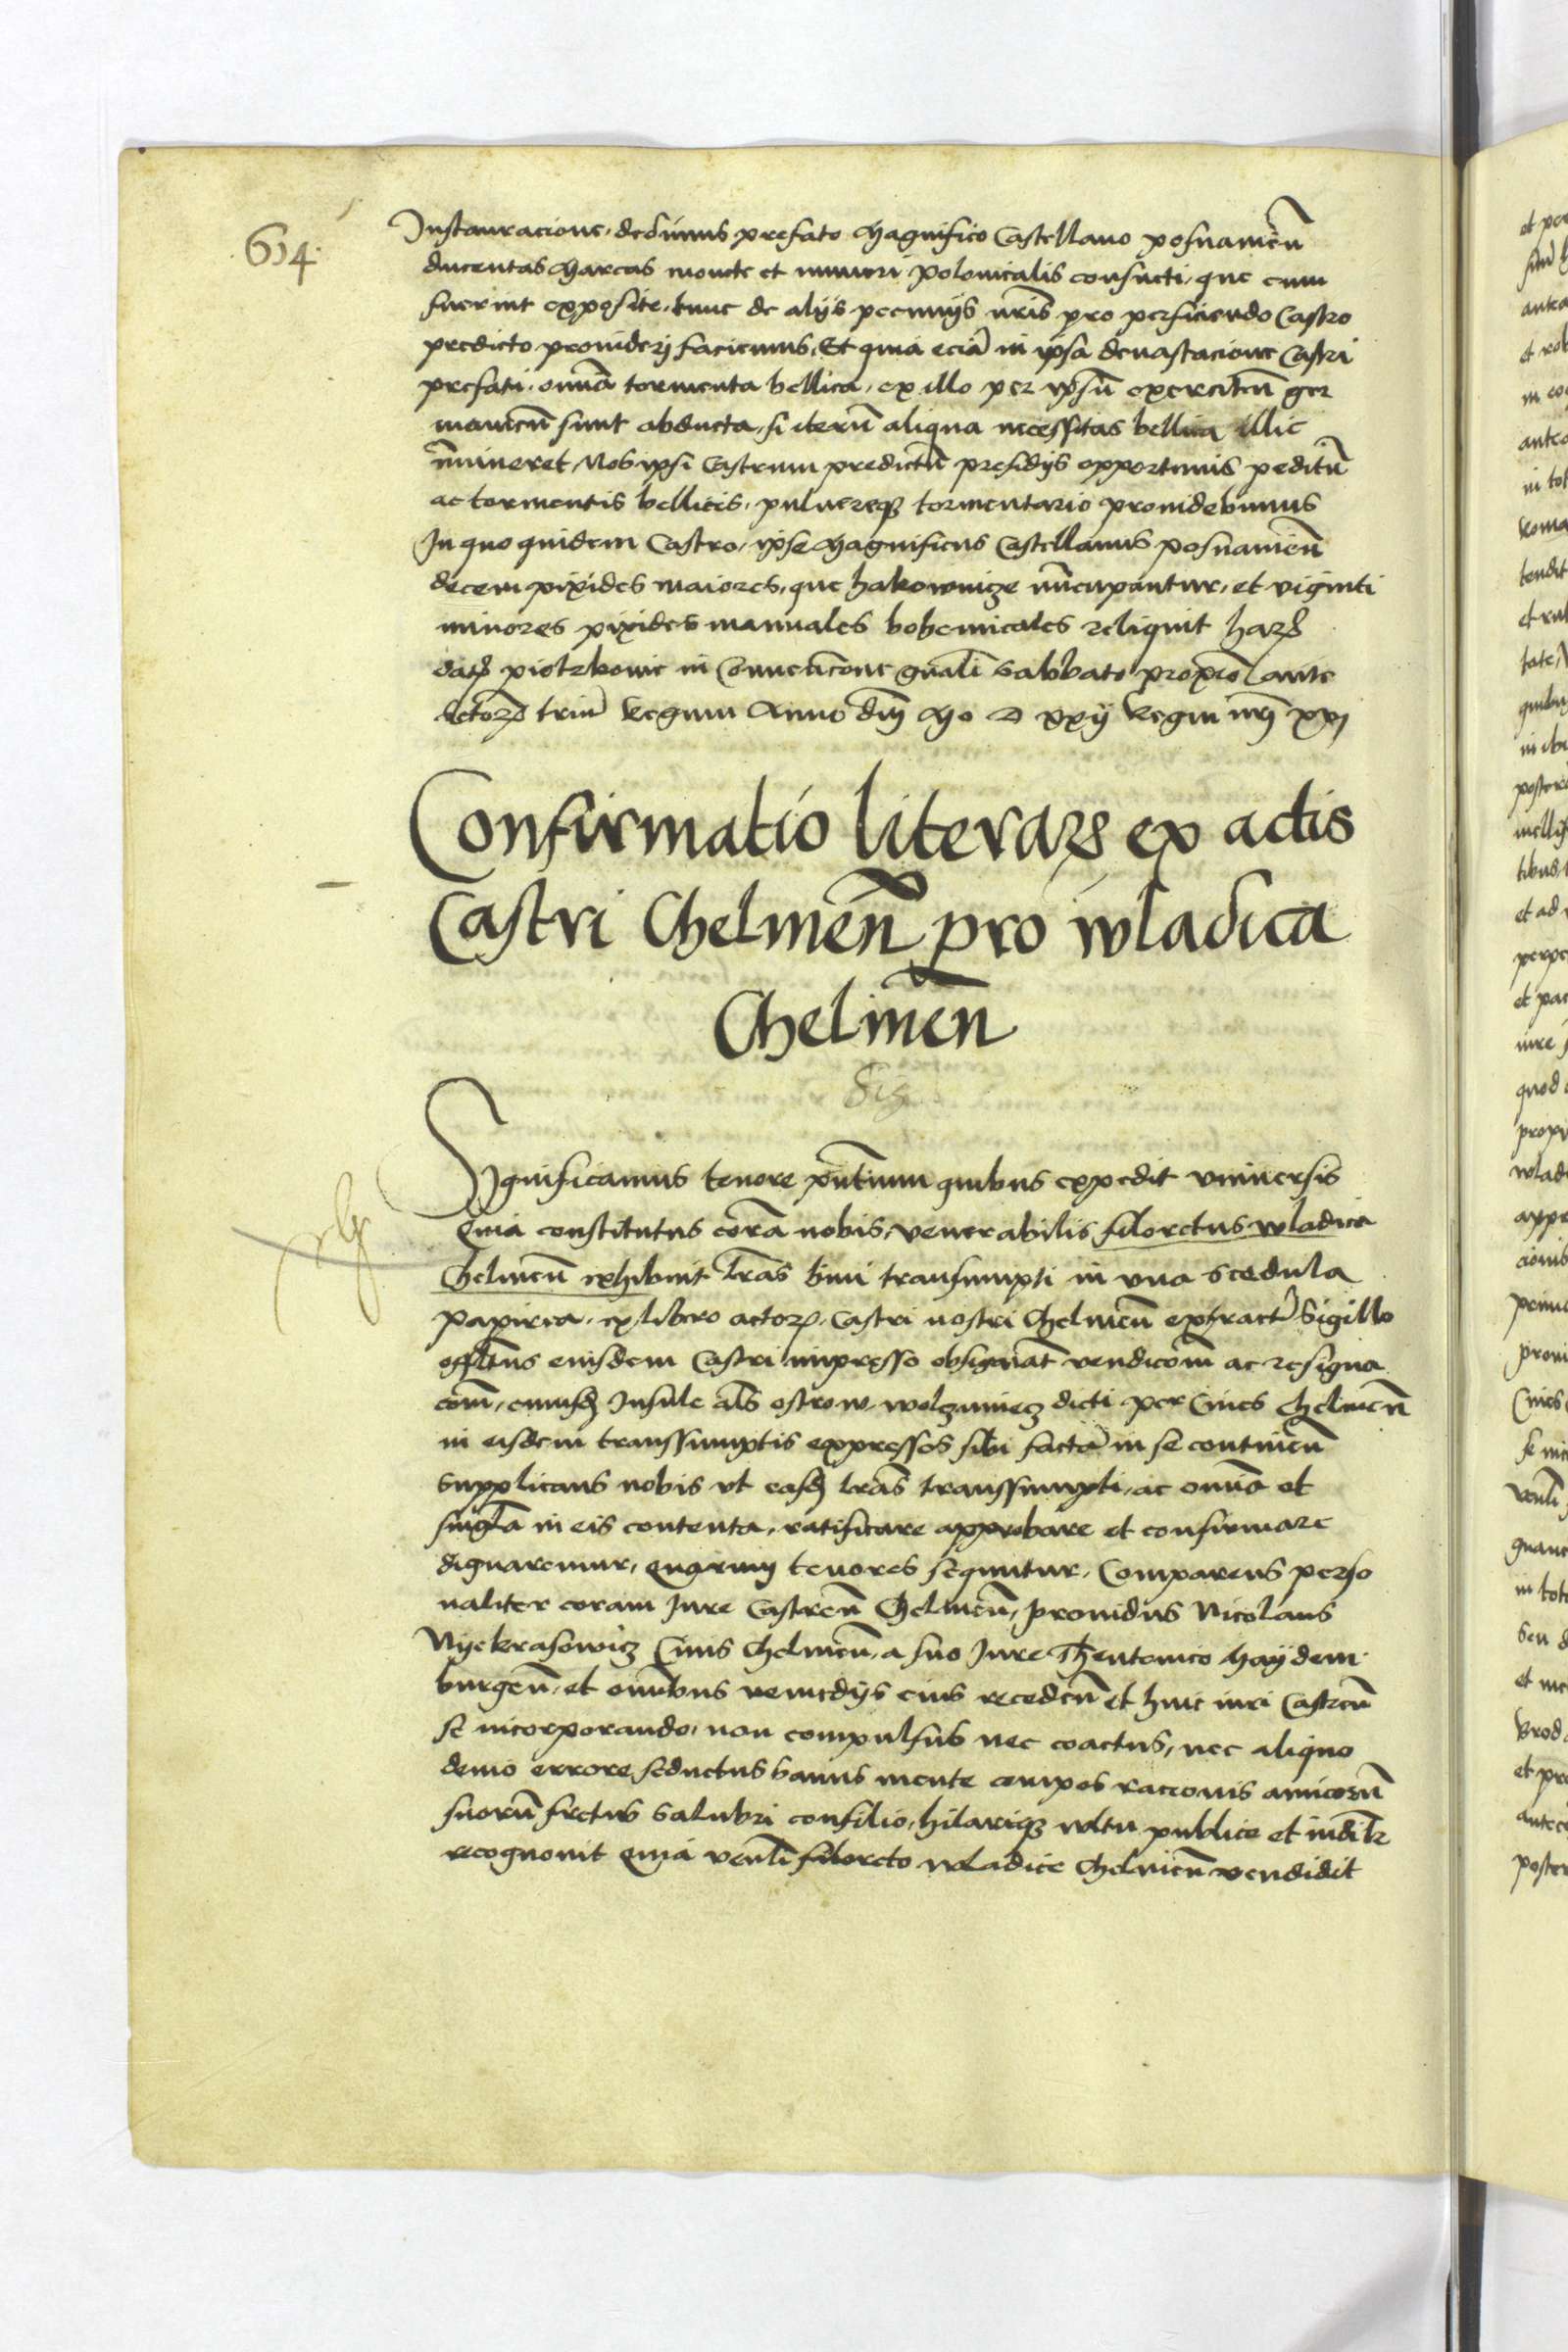 614.
Instauracione, dedimus prefato Magnifico Castellano posnanien̄
ducentas Marcas monete et numeri polonicalis consueti, que cum
fuerint exposite, tunc de alijs pecunijs nr̄is pro perficiendo Castro
predicto provideri faciemus, Et quia eciā in ipsa devastacione Castri
prefati, omnia tormenta bellica, ex illo per ipsū exercitum ger
manicū sunt abducta, si iterū aliqua necessitas bellica illic
īmineret, Nos ipsi Castrum predictū presidijs opportunis peditū
ac tormentis bellicis, pulvereqȝ tormentario providebimus
In quo quidem Castro, ipse Magnificus Castellanus posnanien̄
decem pixides maiores, que hakownicze nūcupantur, et viginti
minores pixides manuales bohemicales reliquit harꝝ
datꝝ piotrkovie in Conventione gn̄ali Sabbato proximo ante
Regum Anno dn̄i Mo D xxij Regni nr̄i xvj
Confirmatio literarꝝ ex actis
Castri Chelmen̄ pro wladica
Chelmen̄
Sig
Significamus tenore pn̄tium quibus expedit universis
Quia constitutus corā nobis, venerabilis filoretus wladica
Chelmen̄ exhibuit l̄ras bini transumpti in una scedula
papirea, ex libro actorꝝ Castri nostri Chelmen̄ extract̄ Sigillo
eiusdem Castri impresso obsignat̄ vendicōm ac resigna
cōm, cuiusdȝ Insule al̄s ostrow wolzuniecz dicti per Cives Chelmen̄
in eisdem transsumptis expressos sibi factā in se continen̄
Supplicans nobis ut easdȝ l̄ras transsumpti, ac omnia et
singl̄a in eis contenta, ratificare approbare et confirmare
dignaremur, Quarum tenores sequntur, Comparens perso
naliter coram Jure Castren̄ Chelmen̄, providus Nicolaus
Nyekrasowicz Civis Chelmen̄, a suo Jure Theutonico Maydem
burgen̄, et omībus remedijs eius receden̄ et huic iuri Castren̄
se incorporando, non compulsus nec coactus, nec aliquo
devio errore seductus Sanus mente compos racionis amicorū
suorū fretus Salubri consilio, hilariqȝ vultu publice et
recognovit Quia ven̄li filoreto wladice Chelmen̄ vendidit